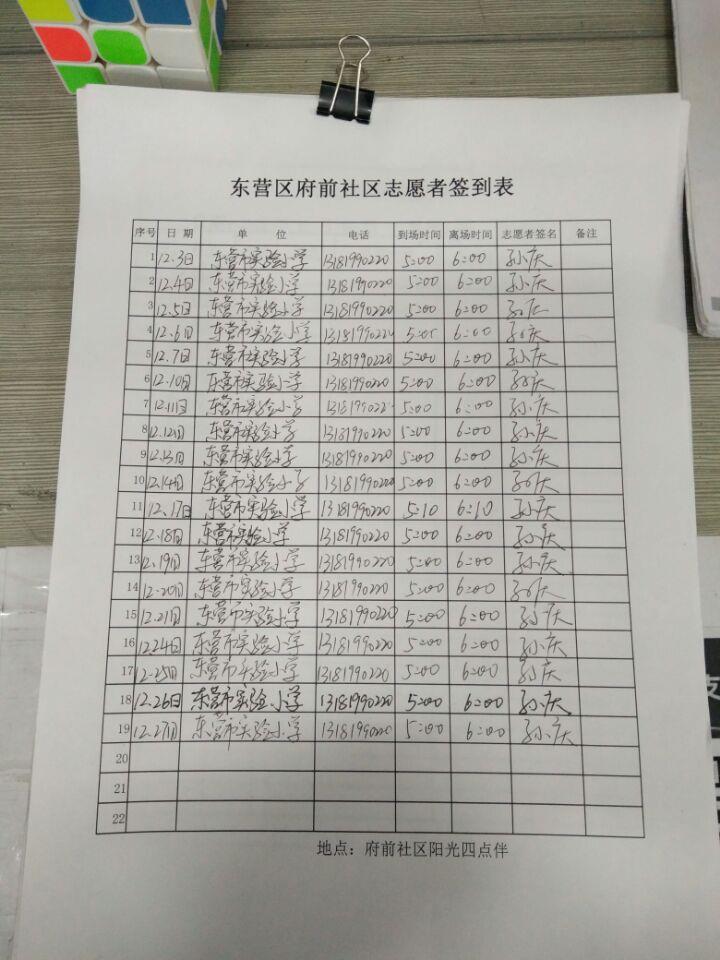 东营区府前社区志愿者签到表
序号 日期 单位 电话 到场时间 离场时间 志愿者签名 备注
1 12.3日 东营市实验小学 13181990220 5:00 6:00 孙庆
2 12.4日 东营市实验小学 13181990220 5:00 6:00 孙庆
3 12.5日 东营市实验小学 13181990220 5:00 6:00 孙庆
4 12.6日 东营市实验小学 13181990220 5:00 6:00 孙庆
5 12.7日 东营市实验小学 13181990220 5:00 6:00 孙庆
6 12.10日 东营市实验小学 13181990220 5:00 6:00 孙庆
7 12.11日 东营市实验小学 13181990220 5:00 6:00 孙庆
8 12.12日 东营市实验小学 13181990220 5:00 6:00 孙庆
9 12.13日 东营市实验小学 13181990220 5:00 6:00 孙庆
10 12.14日 东营市实验小学 13181990220 5:00 6:00 孙庆
11 12.17日 东营市实验小学 13181990220 5:10 6:10 孙庆
12 12.18日 东营市实验小学 13181990220 5:00 6:00 孙庆
13 12.19日 东营市实验小学 13181990220 5:00 6:00 孙庆
14 12.20日 东营市实验小学 13181990220 5:00 6:00 孙庆
15 12.21日 东营市实验小学 13181990220 5:00 6:00 孙庆
16 12.24日 东营市实验小学 13181990220 5:00 6:00 孙庆
17 12.25日 东营市实验小学 13181990220 5:00 6:00 孙庆
18 12.26日 东营市实验小学 13181990220 5:00 6:00 孙庆
19 12.27日 东营市实验小学 13181990220 5:00 6:00 孙庆
20
21
22
地点：府前社区阳光四点伴
支